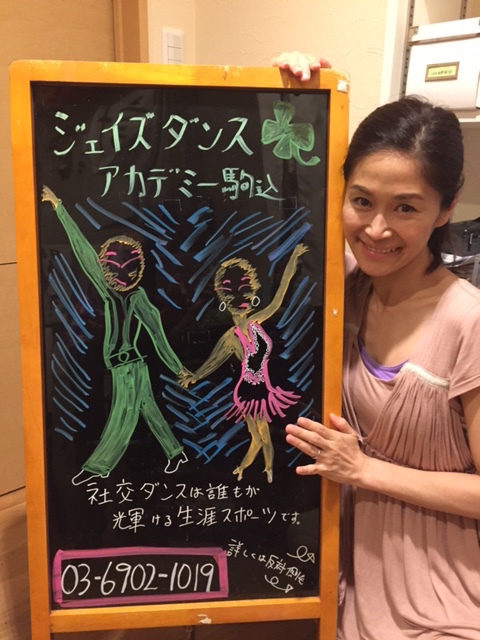 ジェイズダンス
アカデミー駒込
社交ダンスは誰もが
輝ける生涯スポーツです。
詳しくは反対側他
03-6902-1019